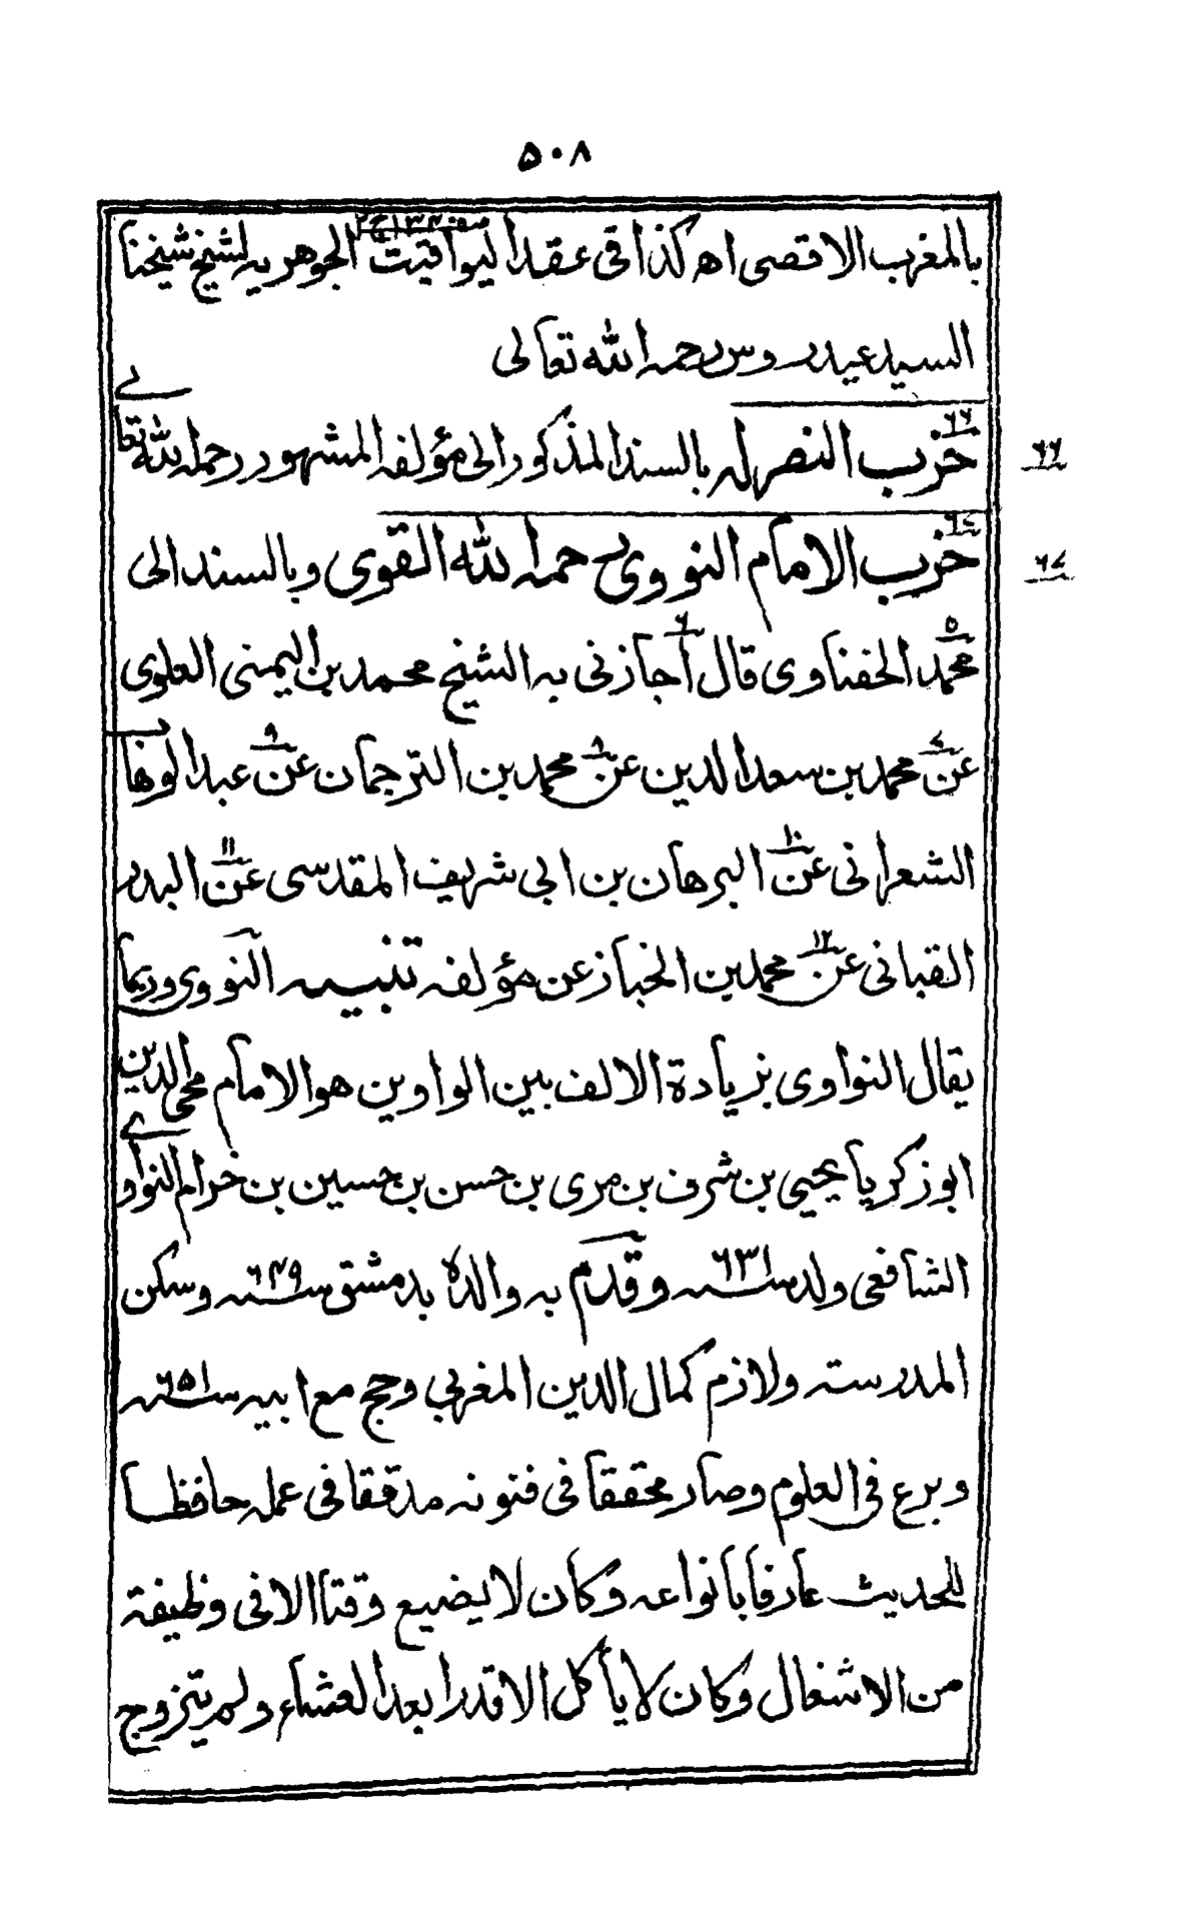 ٥٠٨
بالمغرب الاقصى اھ كذا فى عقد اليواقيت الجوهريه لشيخ شيخنا
السيد عيدروس رحمه الله تعالى
٦٦
حزب النصر له بالسند المذكور الى مؤلفه المشهور رحمه الله تعالى
٦٧
حزب الامام النووى رحمه الله القوى وبالسند الى
محمد الحفناوى قال اجازنى به الشيخ محمد بن اليمنى العلوى
عن محمد بن سعد الدين عن محمد بن الترجمان عن عبد الوهاب
الشعرانى عن البرهان بن ابى شريف المقدسى عن البدر
القبانى عن محمد بن الخباز عن مؤلفه تنبيه النووى وربما
يقال النواوى بزيادة الالف بين الواوين هو الامام محى الدين
ابو زكريا يحيى بن شرف بن مرى بن حسن بن حسين بن خرام النواوى
الشافعى ولد سنه ٦٣١ وقدم به والده بدمشق سنه ٦٤٩ وسكن
المدرسته ولازم كمال الدين المغربى وحج مع ابيه سنه ٦٥١
وبرع فى العلوم وصار محققا فى فنونه مدققا فى عمله حافظا
للحديث عارفا بانواعه وكان لا يضيع وقتا الا فى وظيفة
من الاشغال وكان لا يأكل الا قدرا بعد العشاء ولم يتزوج